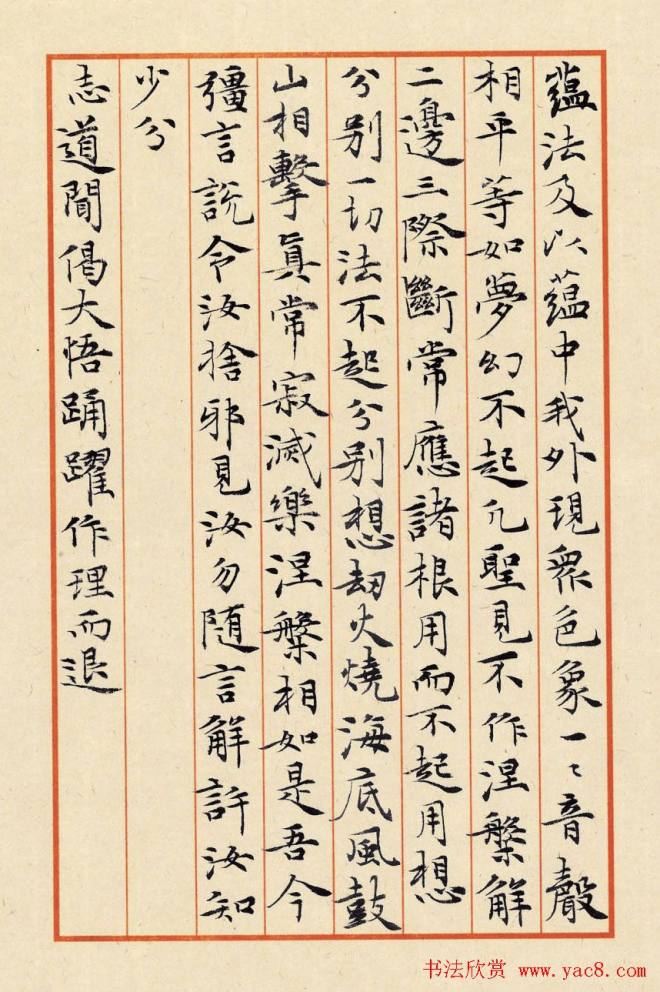 蕴法及以蕴中我外現眾色象一〻音聲
相平等如夢幻不起凡聖見不作涅槃解
二邊三際斷常應諸根用而不起用想
分别一切法不起分别想劫火燒海底風鼓
山相擊真常寂滅樂涅槃相如是吾今
彊言說令汝捨邪見汝勿随言解許汝知
少分
志道聞偈大悟踊躍作理而退
书法欣赏 www.yac8.com